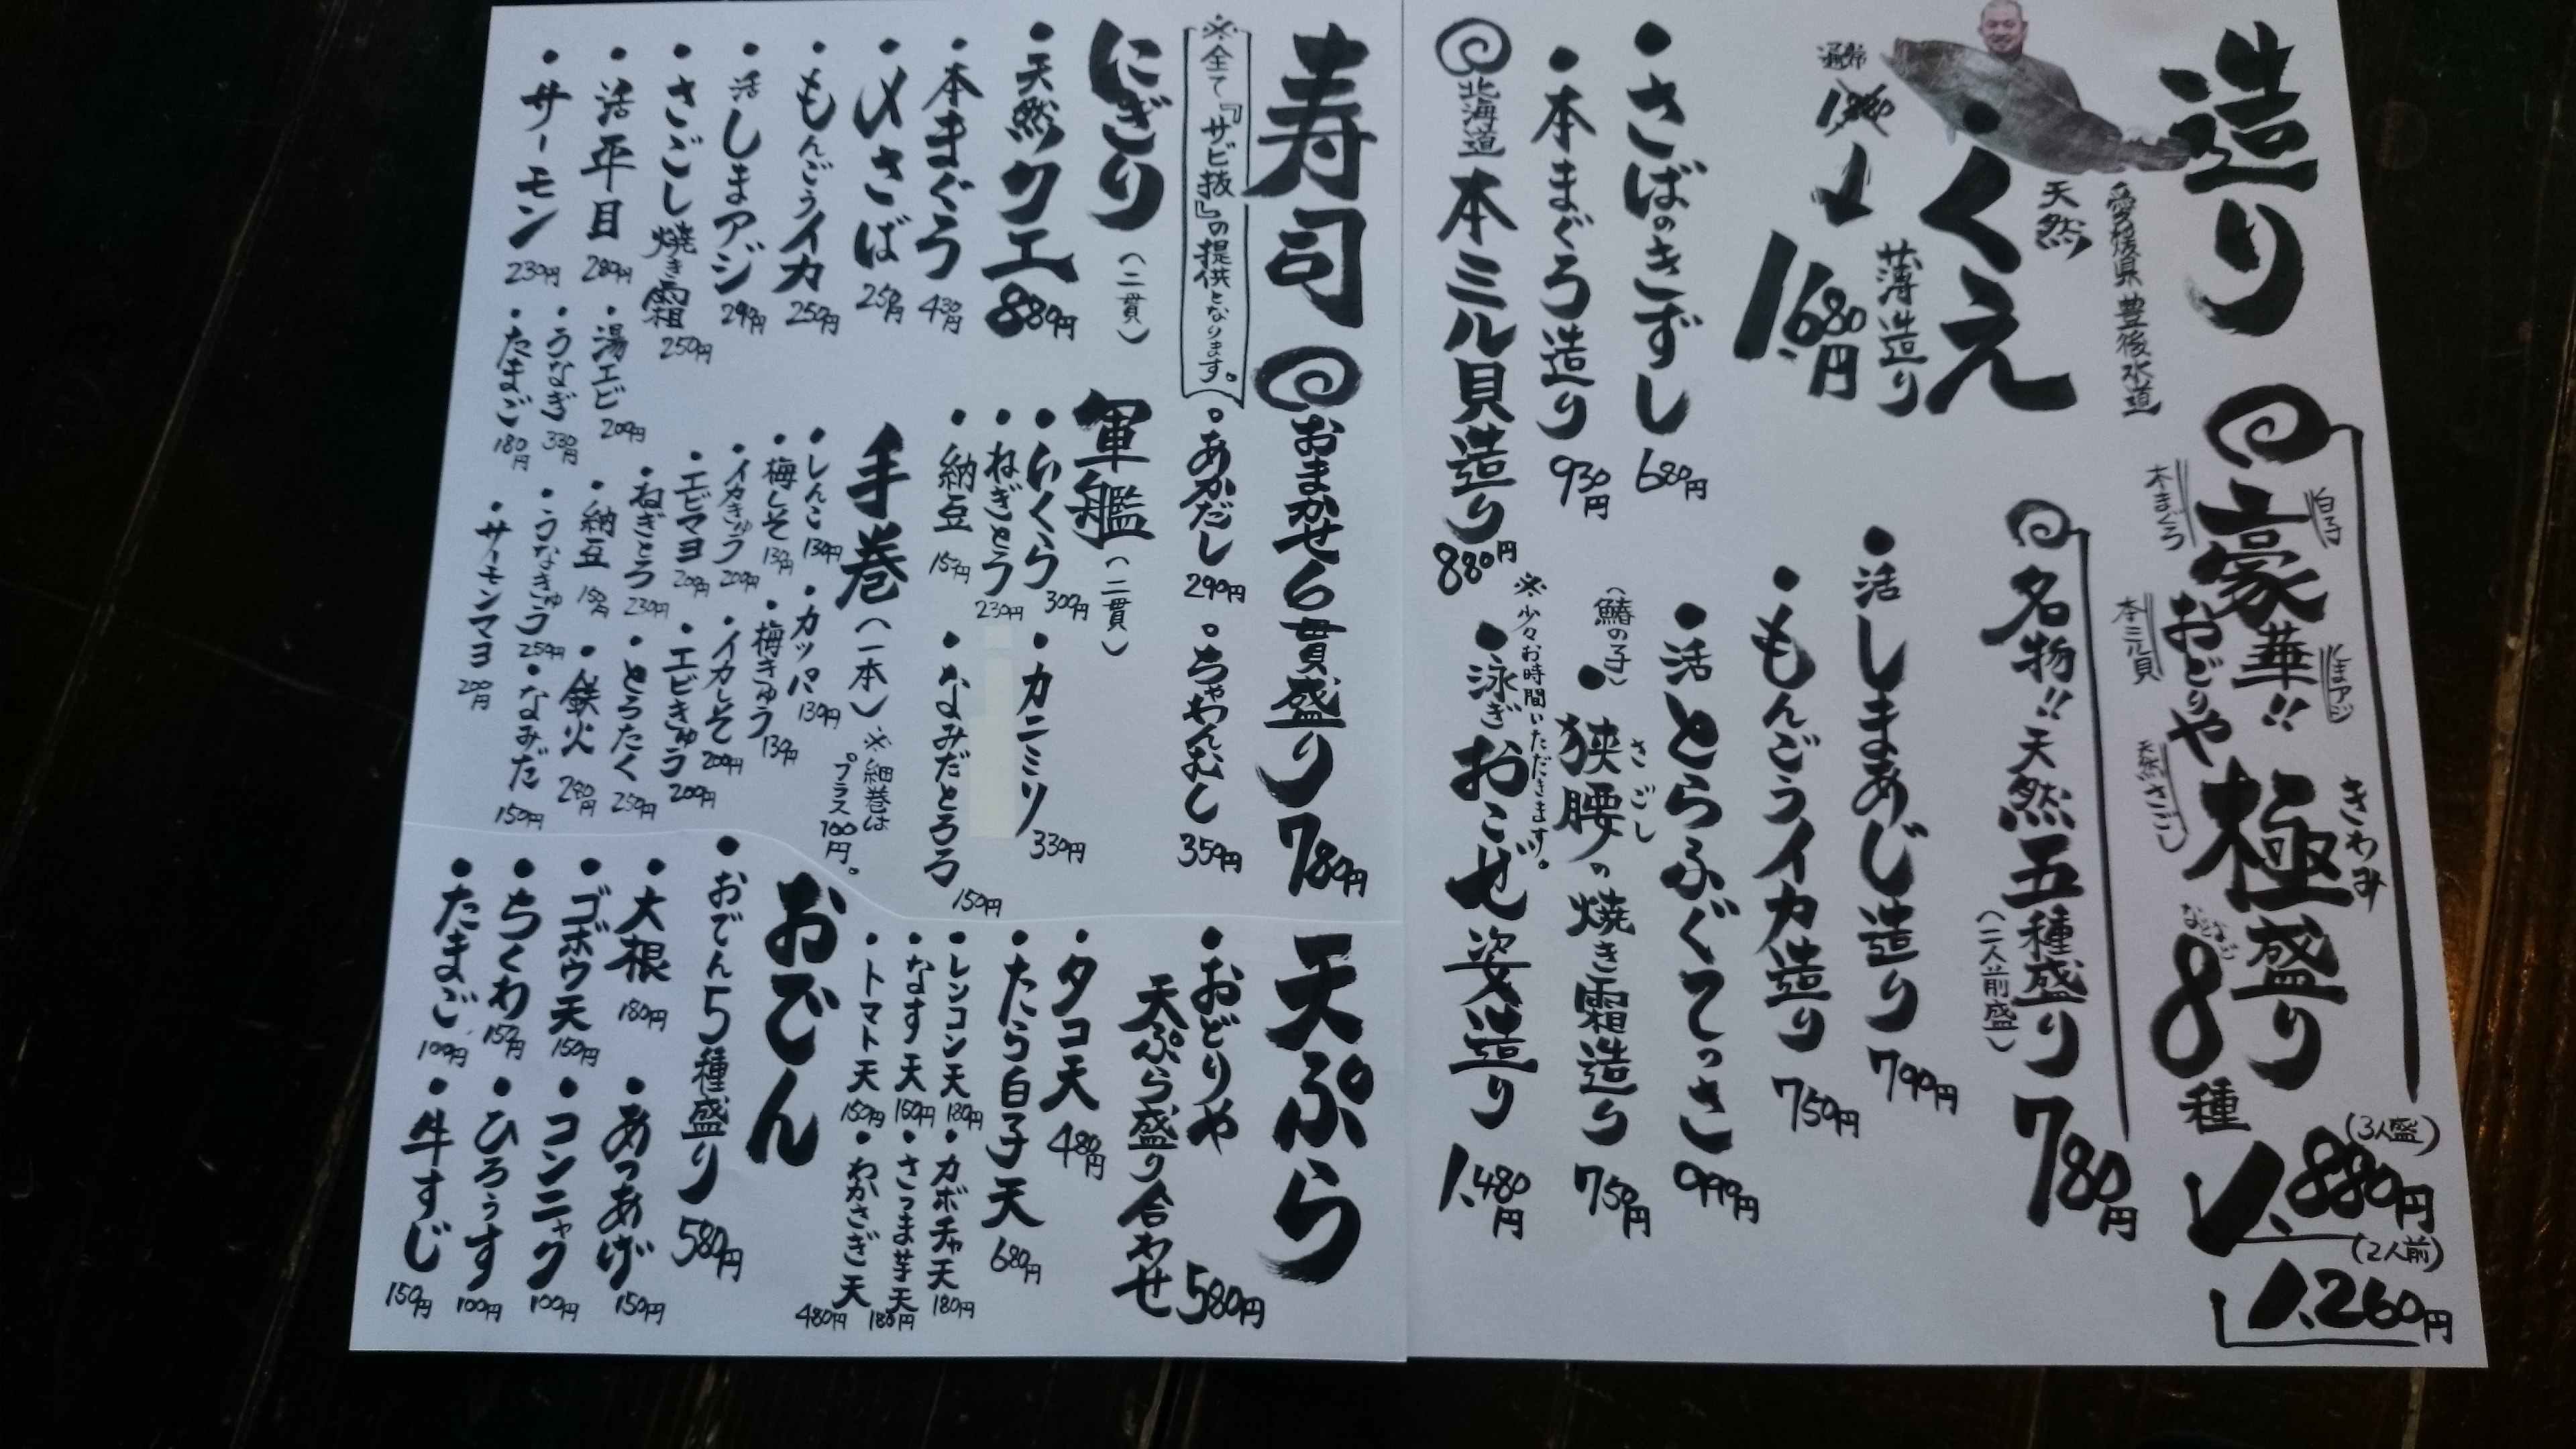 造り
豪華!!おどりや極盛り 8種
きわみ
白子
しまアジ
本まぐろ
本ミル貝
天然さごし
(3人盛)
1,880円
(2人前)
1,260円
名物!!天然五種盛り 780円
(二人前盛)
愛媛県豊後水道
天然
くえ
薄造り
通常
1,680円
・活しまあじ造り 790円
・もんごうイカ造り 750円
・さばのきずし 680円
・活とらふぐてっさ 999円
・本まぐろ造り 930円
(鰆の子)
・狭腰の焼き霜造り 750円
さごし
北海道 本ミル貝造り 880円
※少々お時間いただきます。
・泳ぎおこぜ姿造り 1,480円
寿司
おまかせ6貫盛り 780円
※全て『サビ抜』の提供となります。
・あかだし 290円
・ちゃわんむし 350円
にぎり(二貫)
・天然クエ 880円
・本まぐろ 430円
・〆さば 250円
・もんごうイカ 250円
・活しまアジ 290円
・さごし焼き霜 250円
・活平目 280円
・サーモン 230円
・湯エビ 200円
・うなぎ 330円
・たまご 180円
軍艦(二貫)
・いくら 300円
・カニミソ 330円
・ねぎとろ 230円
・納豆 150円
・なみだとろろ 150円
手巻(一本)
※細巻は
プラス100円。
・しんこ 130円
・カッパ 130円
・梅しそ 130円
・梅きゅう 130円
・イカきゅう 200円
・イカしそ 200円
・エビマヨ 200円
・エビきゅう 200円
・ねぎとろ 230円
・とろたく 250円
・納豆 150円
・鉄火 280円
・うなきゅう 250円
・なみだ 150円
・サーモンマヨ 200円
天ぷら
・おどりや
天ぷら盛り合わせ 580円
・タコ天 480円
・たら白子天 680円
・レンコン天 180円
・カボチャ天 180円
・なす天 150円
・さつま芋天 180円
・トマト天 150円
・わかさぎ天 480円
おでん
・おでん5種盛り 580円
・大根 180円
・あつあげ 150円
・ゴボウ天 150円
・コンニャク 100円
・ちくわ 150円
・ひろうす 100円
・たまご 100円
・牛すじ 150円